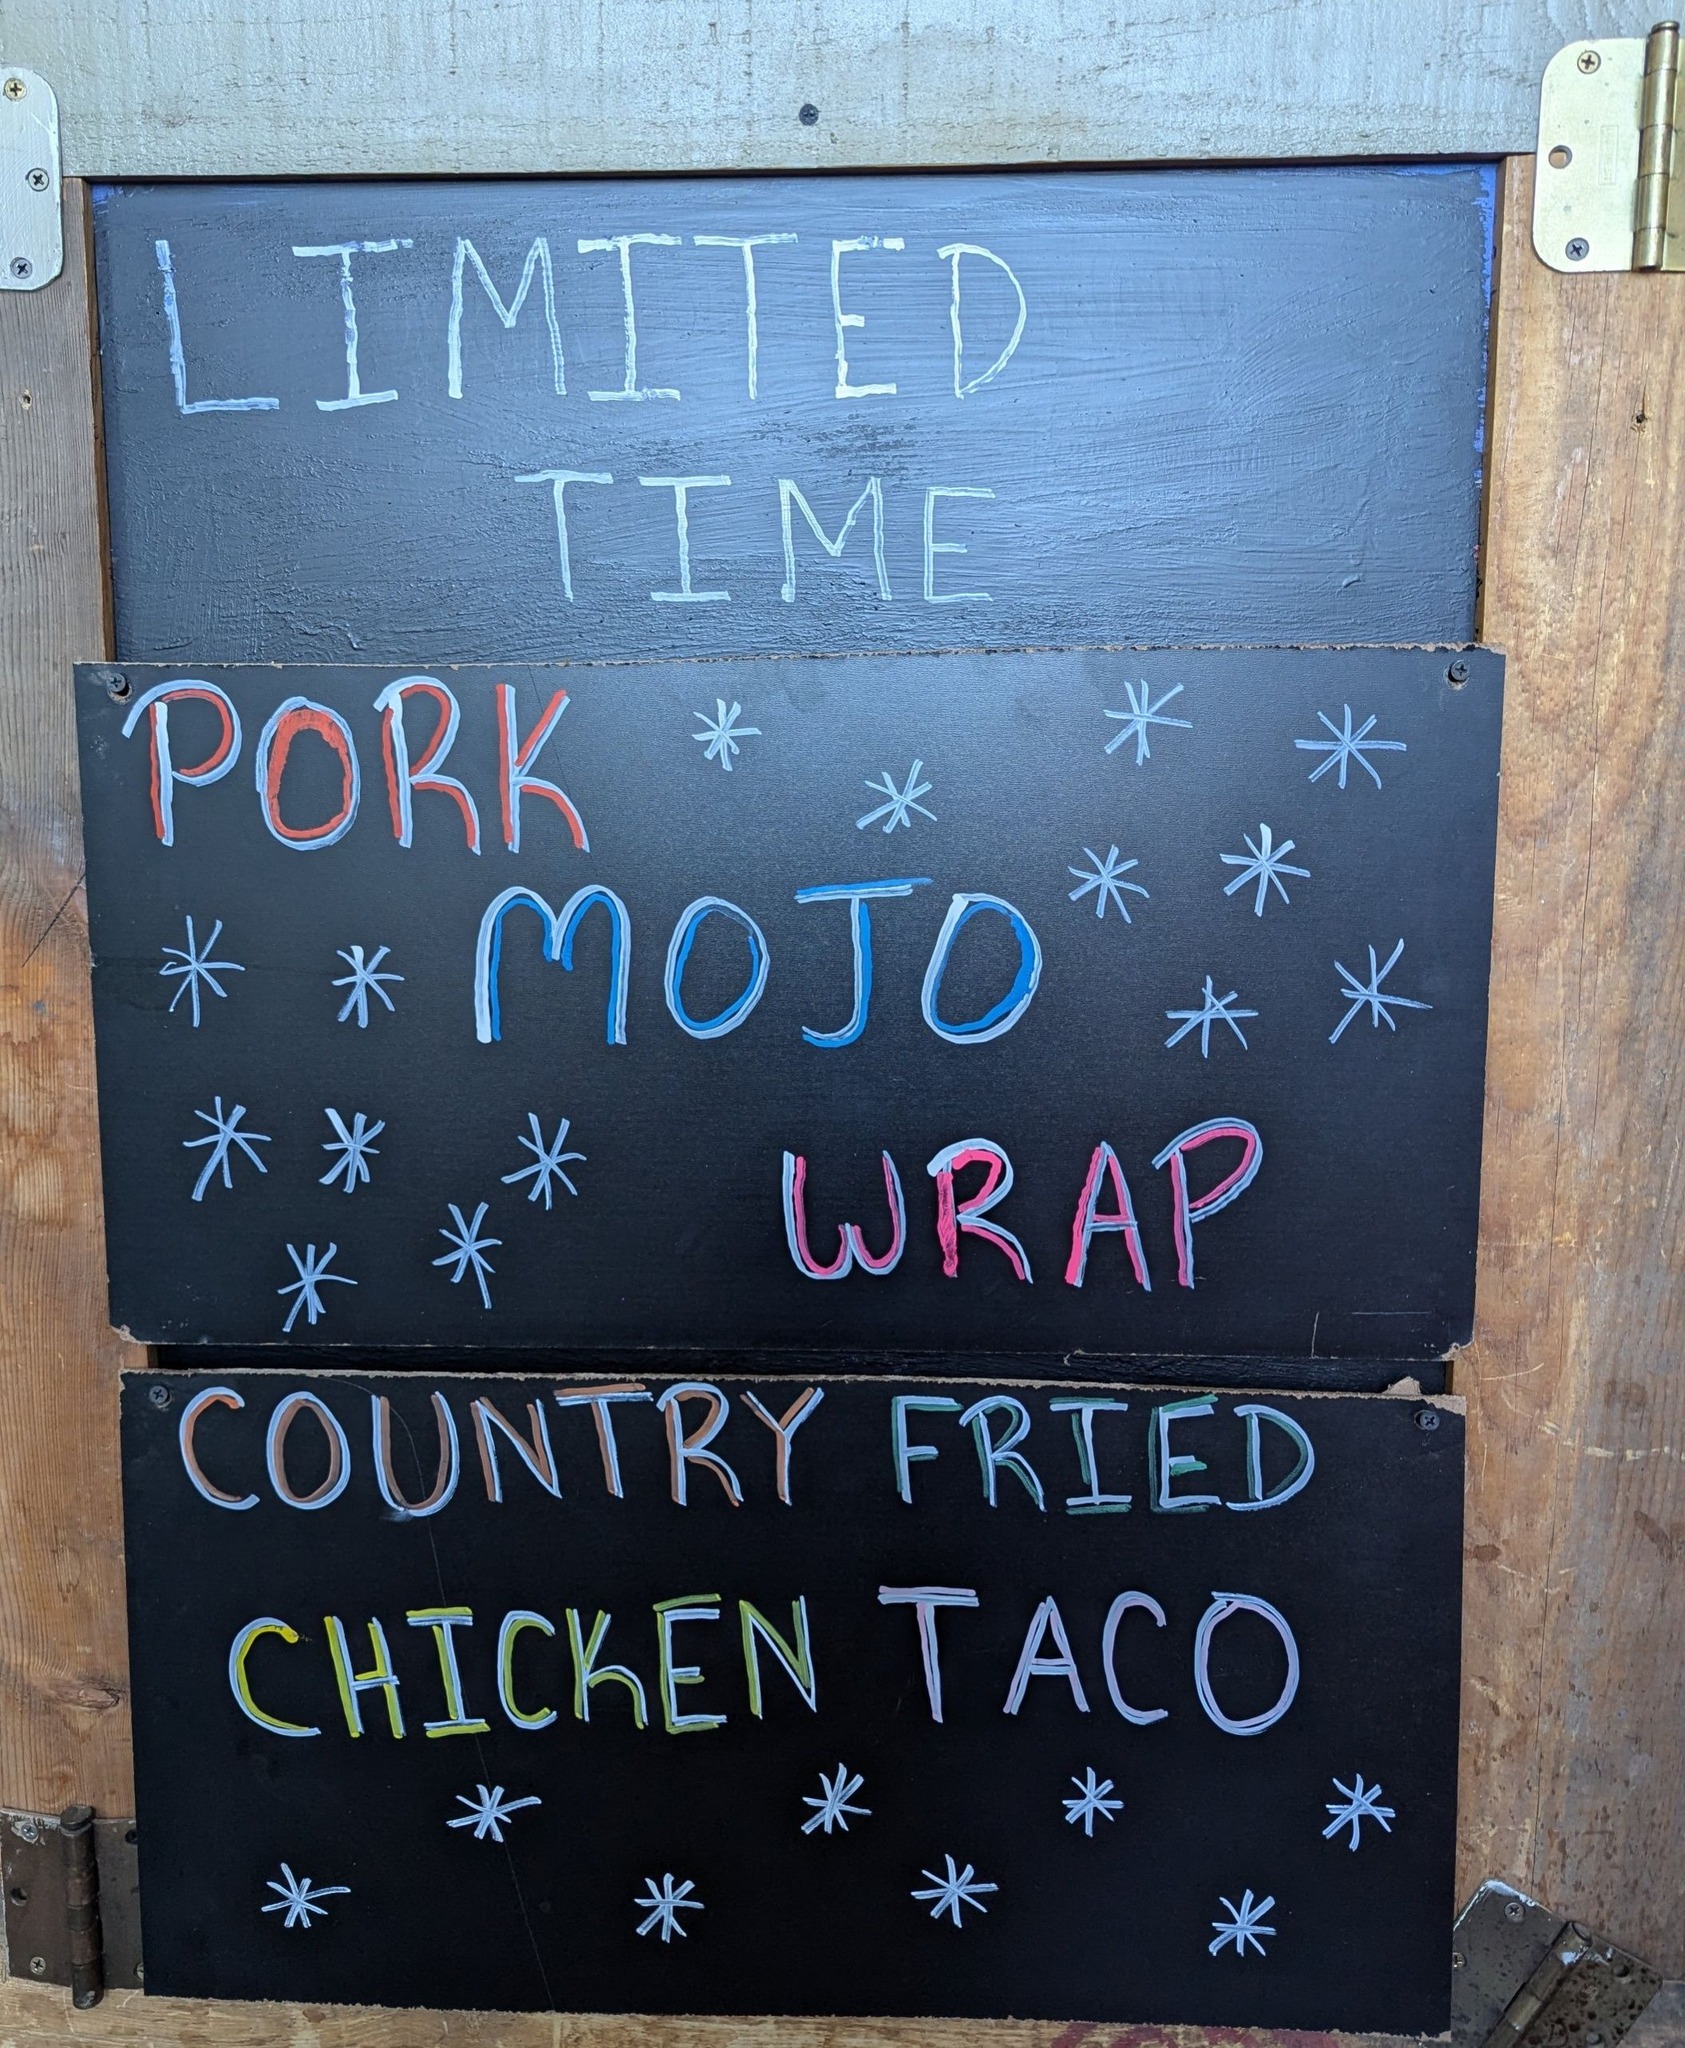 LIMITED
TIME
PORK
MOJO
WRAP
COUNTRY FRIED
CHICKEN TACO